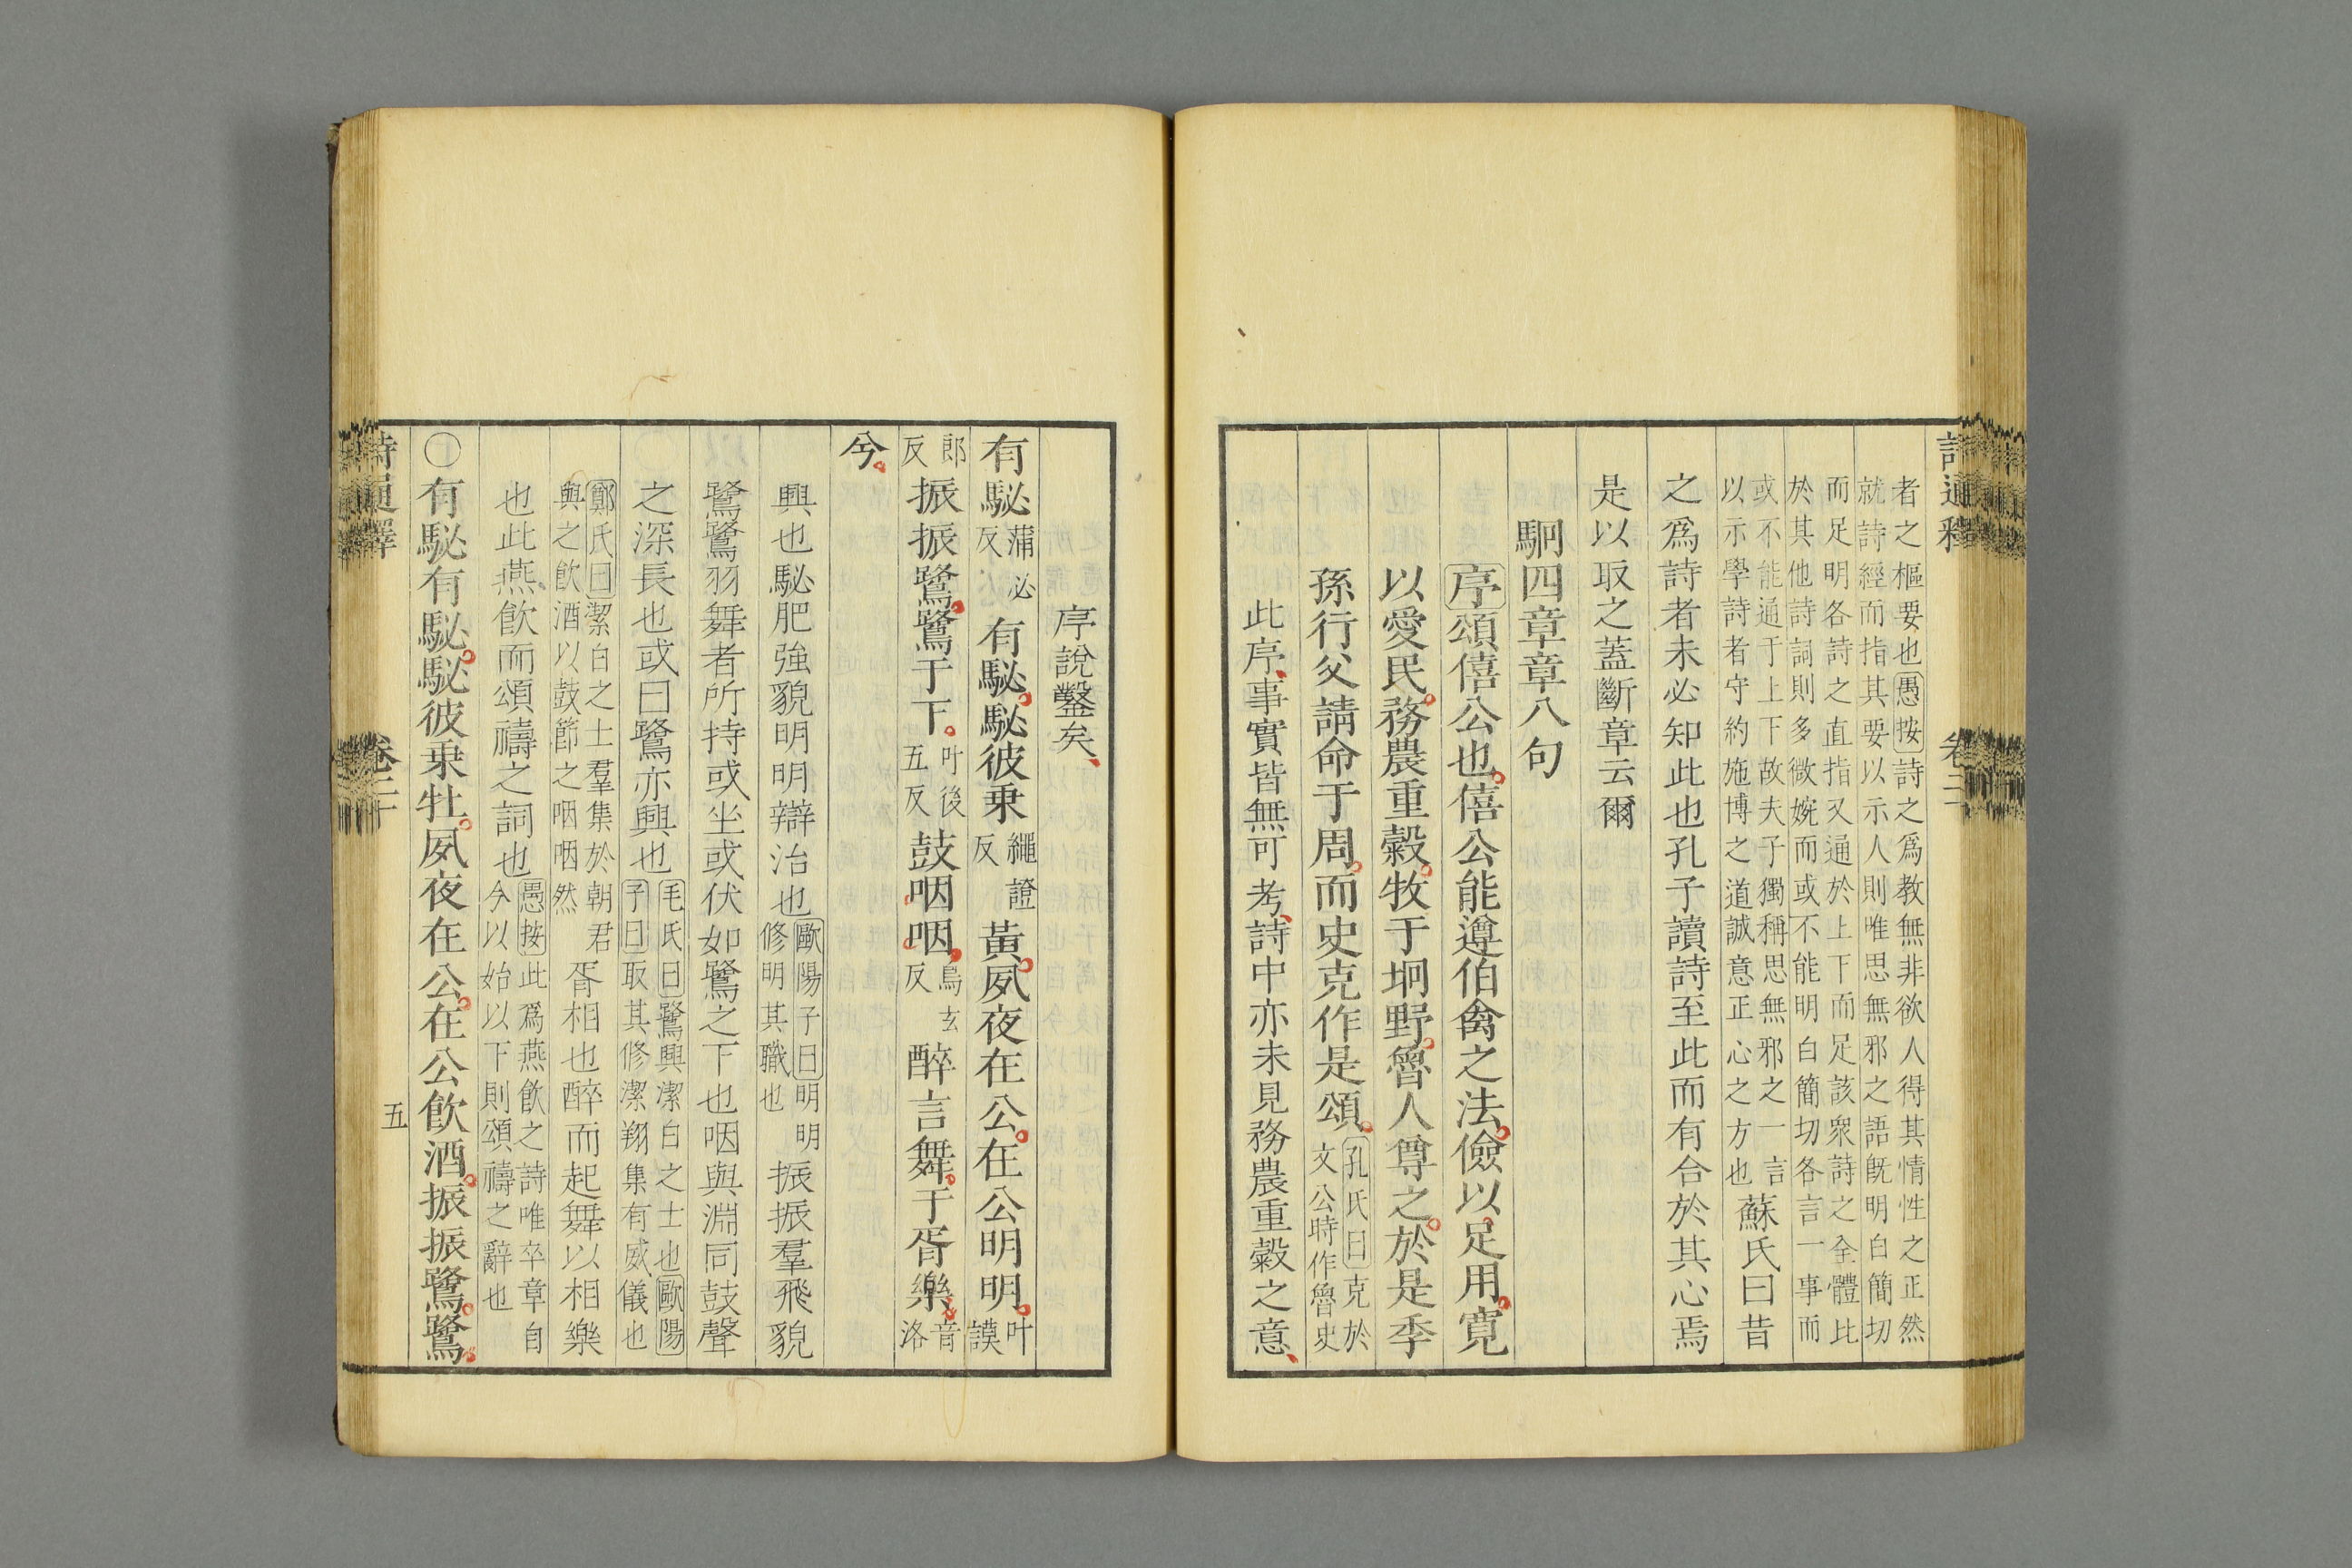 詩通釋 卷二十
者之樞要也愚按詩之爲教無非欲人得其情性之正然
就詩經而指其要以示人則唯思無邪之語旣明白簡切
而足明各詩之直指又通於上下而足該衆詩之全體比
於其他詩詞則多微婉而或不能明白簡切各言一事而
或不能通于上下故夫子獨稱思無邪之一言
以示學詩者守約施博之道誠意正心之方也
蘇氏曰昔
之爲詩者未必知此也孔子讀詩至此而有合於其心焉
是以取之蓋斷章云爾
駉四章章八句
序頌僖公也僖公能遵伯禽之法儉以足用寬
以愛民務農重穀牧于坰野魯人尊之於是季
孫行父請命于周而史克作是頌
孔氏曰克於
文公時作魯史
此序事實皆無可考詩中亦未見務農重穀之意
序說鑿矣
有駜蒲必反有駜駜彼乗繩證反黃夙夜在公在公明明叶謨
郎反振振鷺鷺于下叶後五反鼓咽咽烏玄反醉言舞于胥樂音洛
兮
興也駜肥強貌明明辯治也歐陽子曰明明修明其職也振振羣飛貌
鷺鷺羽舞者所持或坐或伏如鷺之下也咽與淵同鼓聲
之深長也或曰鷺亦興也
毛氏曰鷺興潔白之士也歐陽
子曰取其修潔翔集有威儀也
鄭氏曰潔白之士羣集於朝君
與之飮酒以鼓節之咽咽然
胥相也醉而起舞以相樂
也此燕飮而頌禱之詞也
愚按此爲燕飮之詩唯卒章自
今以始以下則頌禱之辭也
〇有駜有駜駜彼乗牡夙夜在公在公飮酒振振鷺鷺
詩通釋 卷二十 五